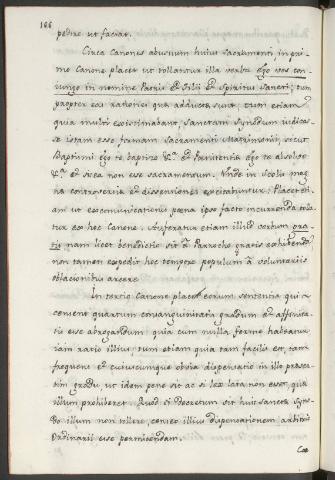 166
pedire ut faciat.
Circa Canones abusuum huius sacramenti, in pri-
mo Canone placet ut tollantur illa verba ego vos con-
iungo in nomine Patris et Filii et Spiritus Sancti; tum
propter eas rationes quæ adductæ sunt, tum etiam
quia multi existimabant, Sanctam Synodum iudicas-
se istam esse formam Sacramenti Matrimonii, sicut
Baptismi ego te baptizo &c.ª et Pœnitentiæ ego te absolvo
&c.ª et sic ea non esse sacramentum. Unde in Scolis mag-
næ controversiæ et dissensiones excitabuntur; Placet eti-
am ut excommunicationis pœna ipso facto incurrenda tolla-
tur ex hoc Canone. Auferatur etiam illud verbum gra-
tis nam licet benedictio sit a Parocho gratis exhibenda
non tamen expedit hoc tempore populum a voluntariis
oblationibus arcere.
In tertio Canone placet eorum sententia qui
cement quartum consanguinitatis gradum et affinita-
tis esse abrogandum; quia cum nulla ferme habeatur
iam ratio illius, tum etiam quia tam facilis est, tam
frequens et cuicumque obvia dispensatio in illo præser-
tim gradu, ut idem pene sit ac si lex lata non esset, quæ
illum prohiberet. Quod si Decretum sit huic sanctæ Syno-
do illum non tollere, censeo illius dispensationem arbitrio
Ordinarii esse permittendam.